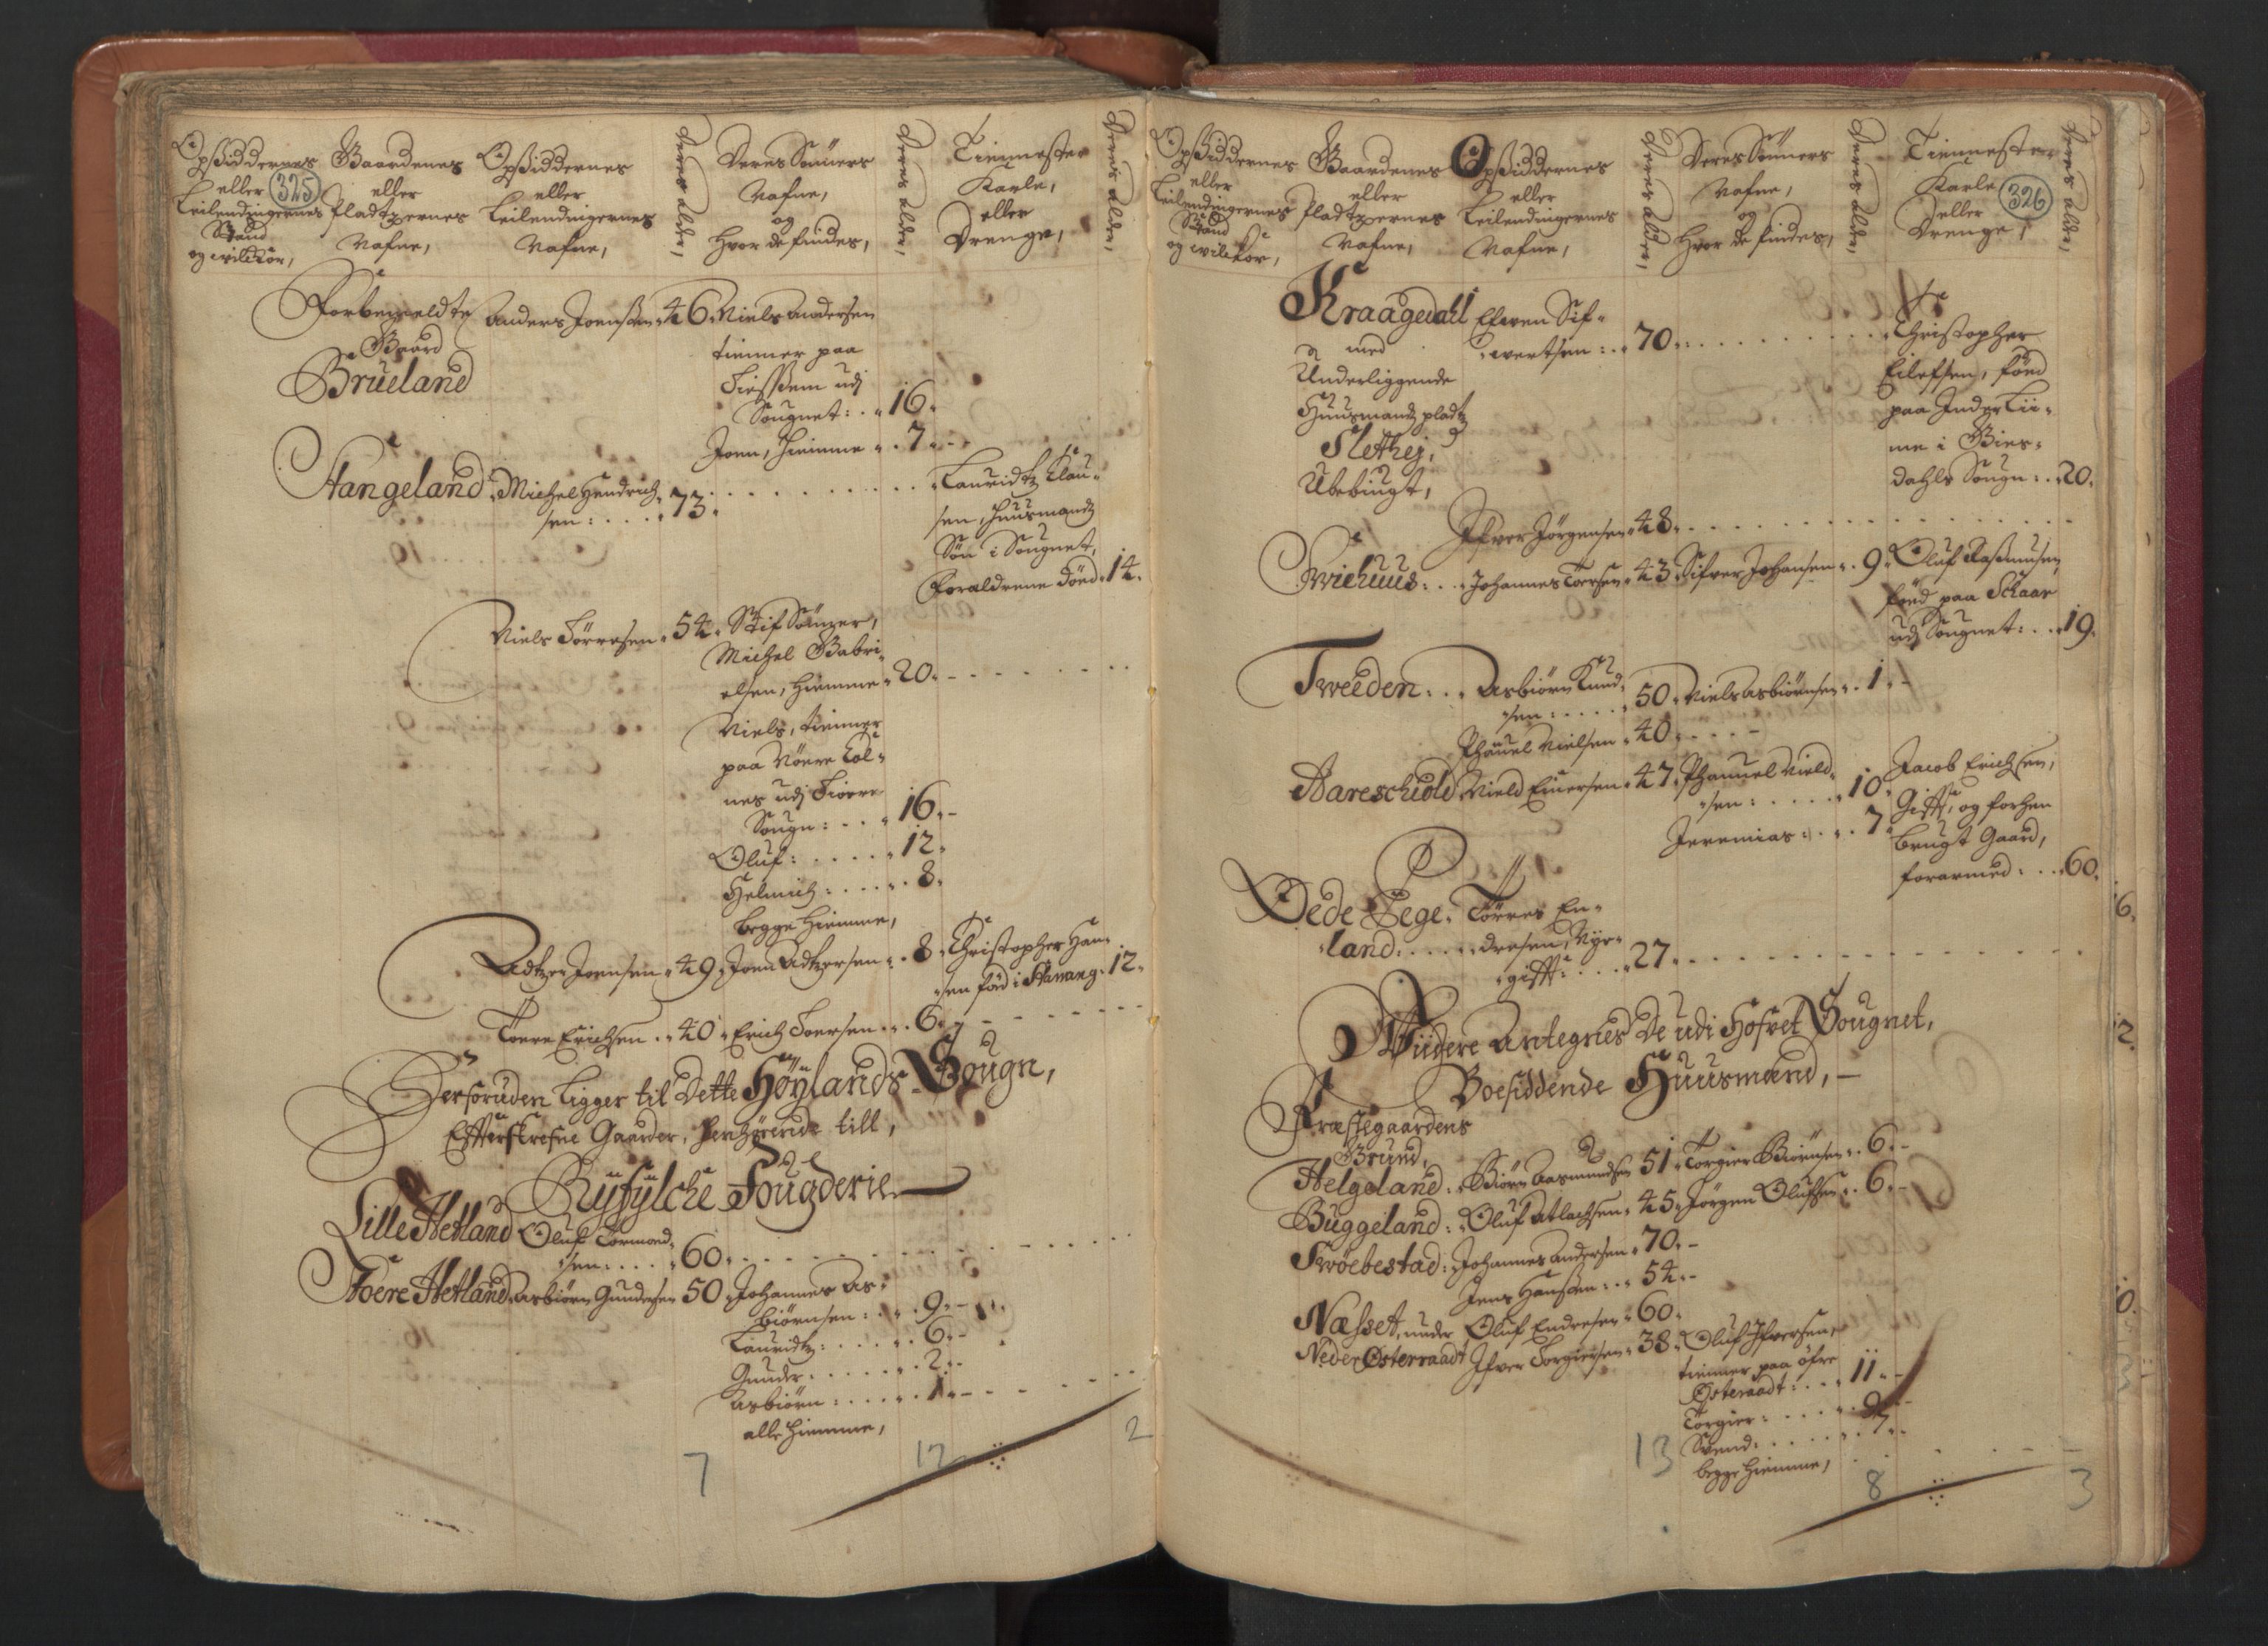 325
Opsiddernes
eller
Leilendingernes
Stand
og vilckor,
Gaardenes
eller
Pladtzernes
Nafne,
Opsiddernes
eller
Leilendingernes
Nafne,
Deres alder,
Deres Sönners
Nafne,
og
Hvor de findes,
Deres alder,
Tienneste
Karle,
eller
Drenge,
Deres alder,
Forbemeldte
Gaard
Brueland
Anders Joenssen 46.
Niels Andersen
tienner paa
udj
Sougnet: 16.
Joen, hiemme 7.
Stangeland Michel Hendrich-
sen: 73.
Lauridtz Clau-
sen, huusmandz
Søn i Sougnet,
Foraldrene döed. 14.
Niels Törresen 54.
Stif Sönner,
Michel Gabri-
elsen, hiemme 20.
Niels, tienner
paa Nöere Col-
nes udj
Sougn: 16.
Oluf: 12.
Helmich: 8.
begge hiemme,
Adtzer Joensen 49. Joen Adtzersen 8.
Christopher Han-
sen föd i Stavang. 12.
Toere Erichsen 40. Erich Toersen 6.
Derforuden Ligger til Dette Höÿlands Sougn,
Effterskrefne Gaarder, henhörende till,
Rÿfÿlche Fougderie
Lille Hetland Oluf Tormoed-
sen: 60.
Stoere Hetland Asbiörn Gundersen 50.
Johannes As-
biörnsen: 9.
Lauridtz: 6.
Gunder: 2.
Asbiörn: 1.
alle hiemme,
7 12 2
326
Opsiddernes
eller
Leilendingernes
Stand
og vilckor,
Gaardenes
eller
Pladtzernes
Nafne,
Opsiddernes
eller
Leilendingernes
Nafne,
Deres alder,
Deres Sönners
Nafne,
og
Hvor de findes,
Deres alder,
Tienneste
Karle
eller
Drenge,
Deres alder,
Kraagedall
med
Underliggende
Huusmandz pladtz
Slethej,
Ubebingt,
Elwen Sif-
wertsen: 70.
Christopher
Eilefsen, föed
paa Inder Lii-
me i Bier-
dahls Sougn: 20.
Ifver Jörgensen 48.
Swiehuus: Johannes Toersen 43. Sifver Johansen 9.
Oluf Rasmusen
föed paa Schaar
udj Sougnet: 19.
Tweeden: Asbiörn Knud-
sen: 50. Niels Asbiörnsen 1.
Phauel Nielsen 40.
Aareschiold Nield Einersen 47.
Phauuel Nield-
sen: 10.
Jeremias: 7.
Jacob Erichsen,
Gifft, og forhen
brugt Gaard,
forarmed: 60.
Oede Ege-
land: Törres En-
dresen, Nye-
gifft: 27.
Widere Antegnes De udi Hofvet Sougnet,
Boesiddende Huusmænd,
Præstegaardens
Grund,
Helgeland: Biörn Aasmundsen 51. Torgier Biörnsen 6.
Buggeland: Oluf Atlachsen 45. Jörgen Olufsen 6.
Swöebestad: Johannes Andersen 70.
Jens Hanssen: 54.
Næsset, under
Neder Østerraadt
Oluf Endresen 60.
Ifver Torgiersen 38.
Oluf Ifversen,
tienner paa öfre
Østeraadt: 11.
Torgier: 9.
Svend: 7.
begge hiemme,
13 8 3